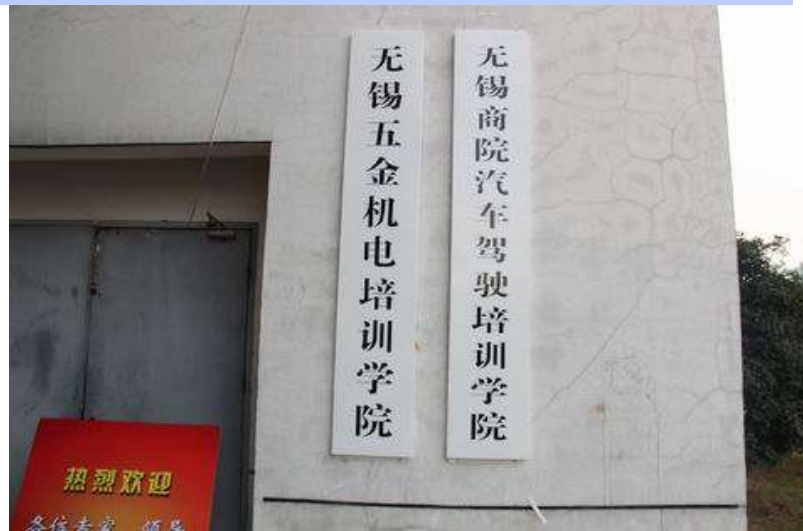 无锡五金机电培训学院
无锡商院汽车驾驶培训学院
热烈欢迎
各位专家 领导